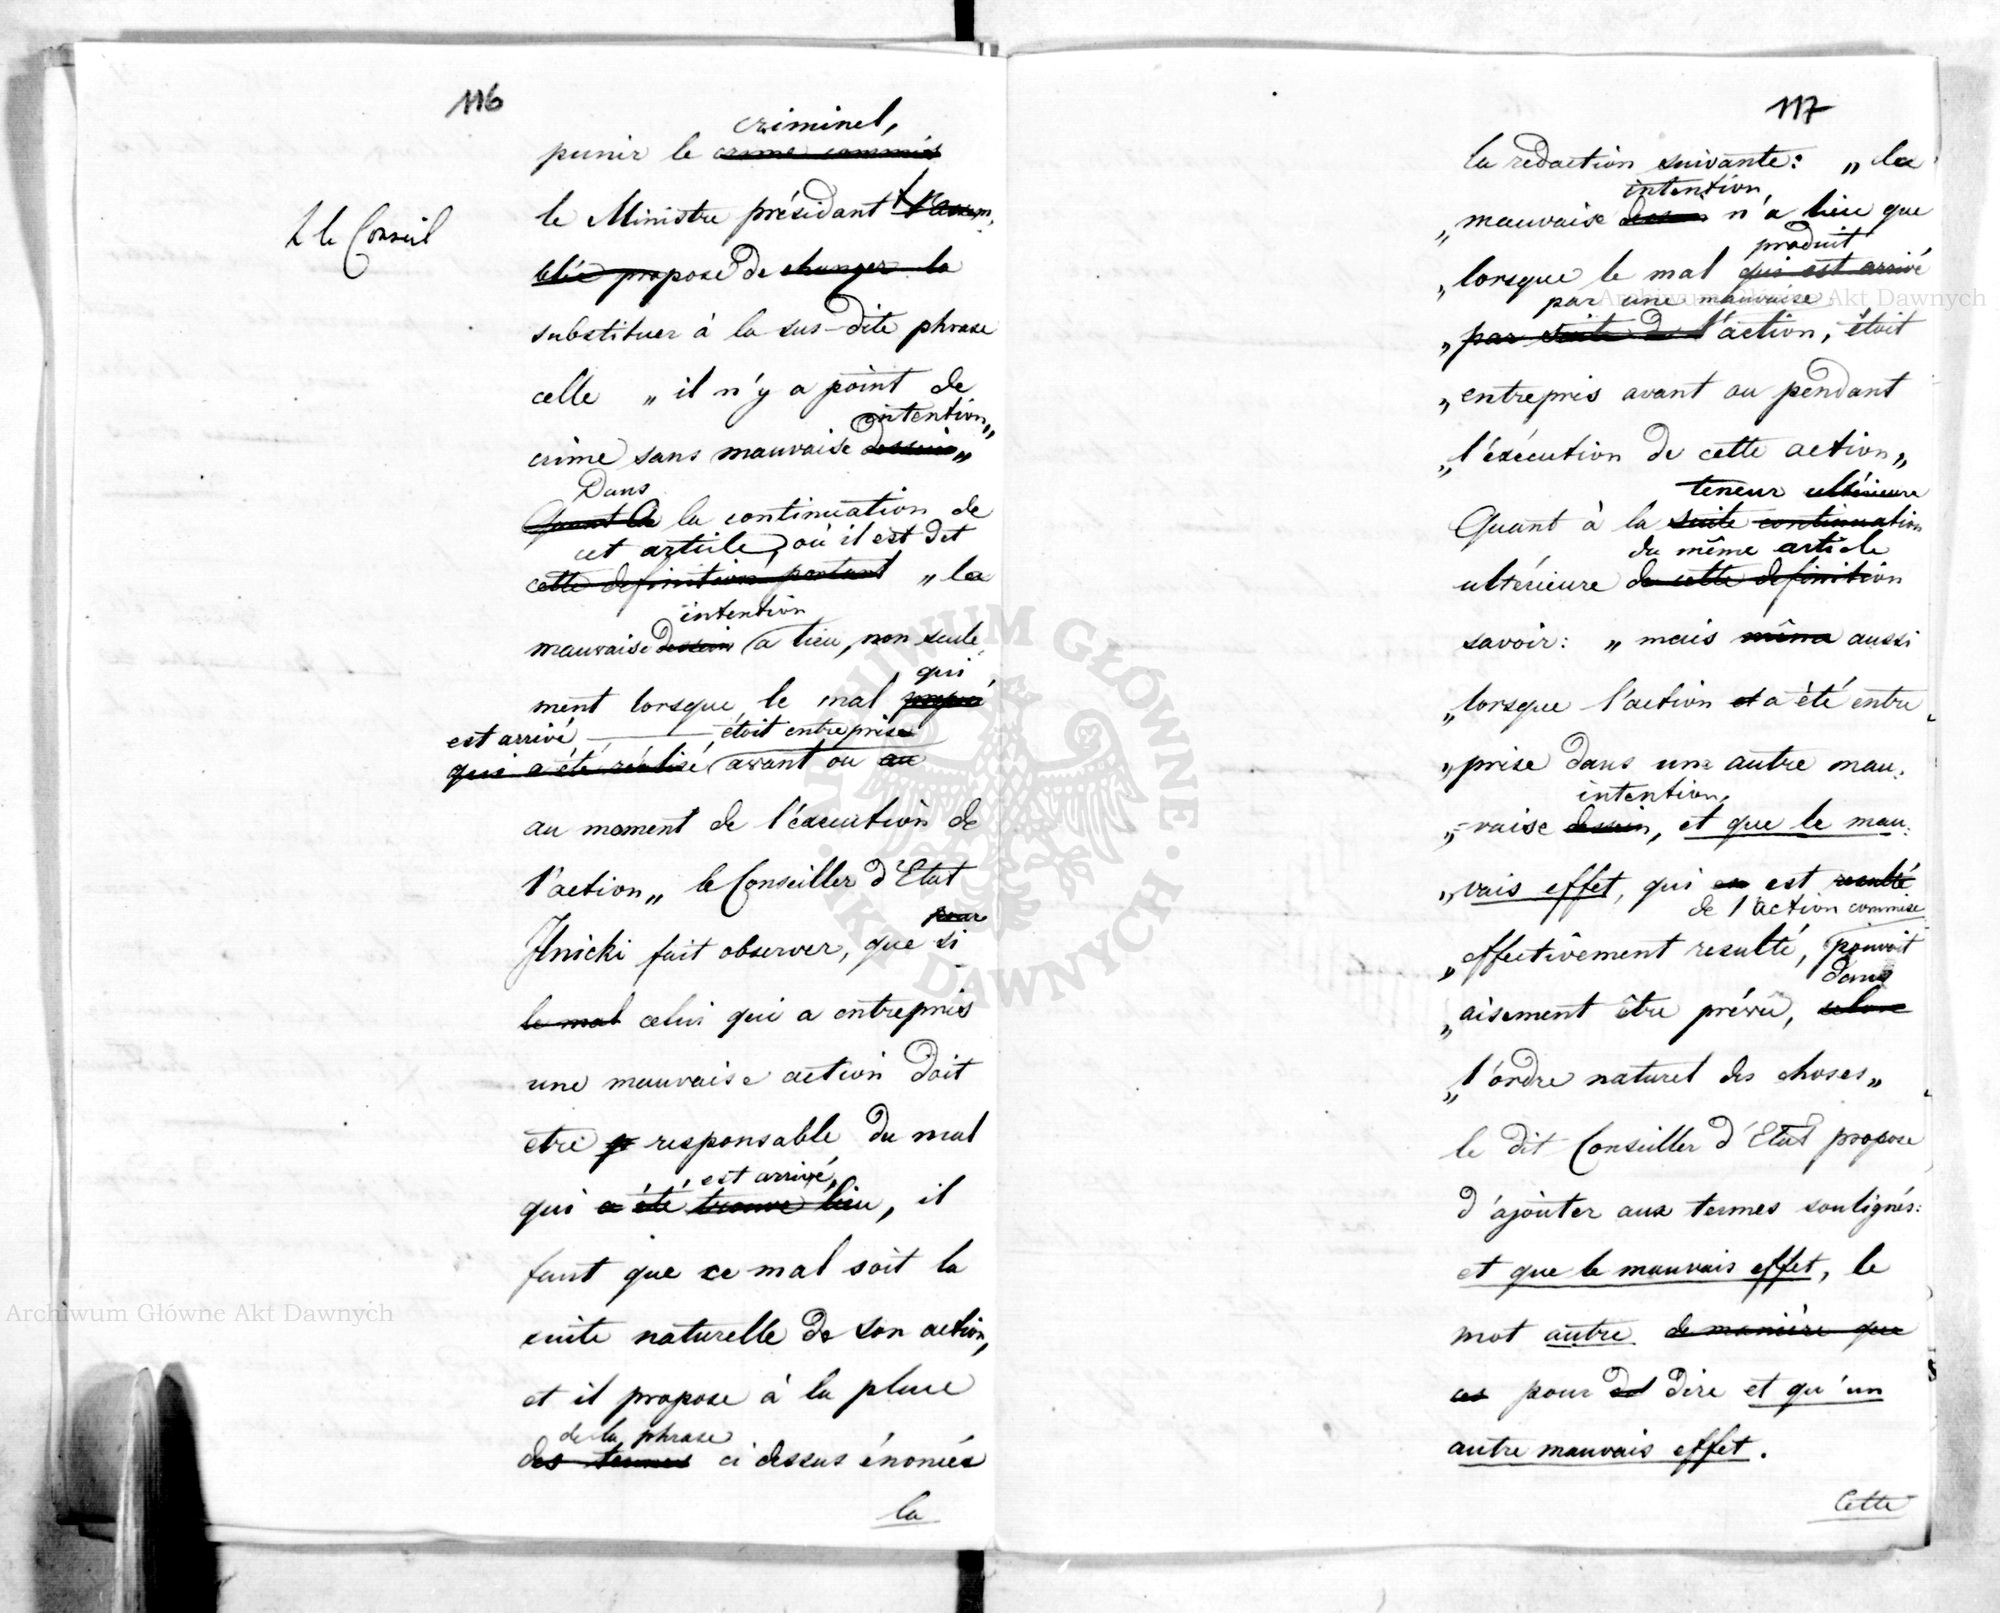 116
criminel,
punir le crime commis
le Ministre président l'assem-
H le Conseil
blée propose de changer la
substituer à la sus-dite phrase
celle „ il n'y a point de
intention„
crime sans mauvaise dessein„
Dans
Quant à la continuation de
cet article, où il est dit
cette definition portant „ la
intention
mauvaise dessein a lieu, non seule
qui
ment lorsque le mal
est arrivé étoit entreprise
qui a été réalisé avant ou au
au moment de l'éxecution de
l'action„ le Conseiller d'Etat
pour
Ilnicki fait observer, que si
le mal celui qui a entrepris
une mauvaise action doit
etre responsable du mal
est arrivé,
qui a été trouve lieu, il
faut que ce mal soit la
suite naturelle de son action,
et il propose à la place
de la phrase
des termes ci dessus énoncés
la
117
la redaction suivante: „ la
intention
„mauvaise dessein n'a lieu que
produit
„lorsque le mal qui est arrivé
par une mauvaise
„par suite de l'action, étoit
„entrepris avant ou pendant
„l'éxécution de cette action„
teneur ultérieure
Quant à la suite continuation
du même article
ultérieure de cette definition
savoir: „ mais même aussi
„lorsque l'action et a été entre
„prise dans une autre mau-
intention,
„-vaise dessein, et que le mau-
„vais effet, qui en est resulté
de l'action commise
„effectivement resulté, pouvoit
dans
„aisement être prévu, selon
„l'ordre naturel des choses„
le dit Conseiller d'Etat propose
d'ajouter aux termes soulignés:
et que le mauvais effet, le
mot autre de manière que
ces pour dire et qu'un
autre mauvais effet.
Cette
Archiwum Główne Akt Dawnych
Archiwum Główne Akt Dawnych
ARCHIWUM GŁÓWNE AKT DAWNYCH